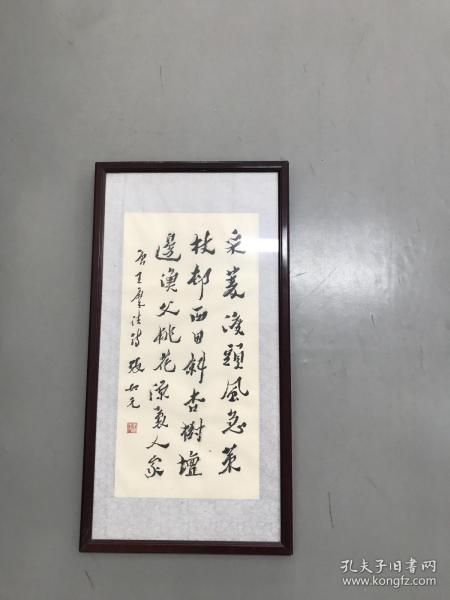 采菱渡頭風急策
杖邨西日斜杏樹壇
邊漁父桃花源裏人家
唐王摩詰詩 張如元
孔夫子旧书网
www.kongfz.com